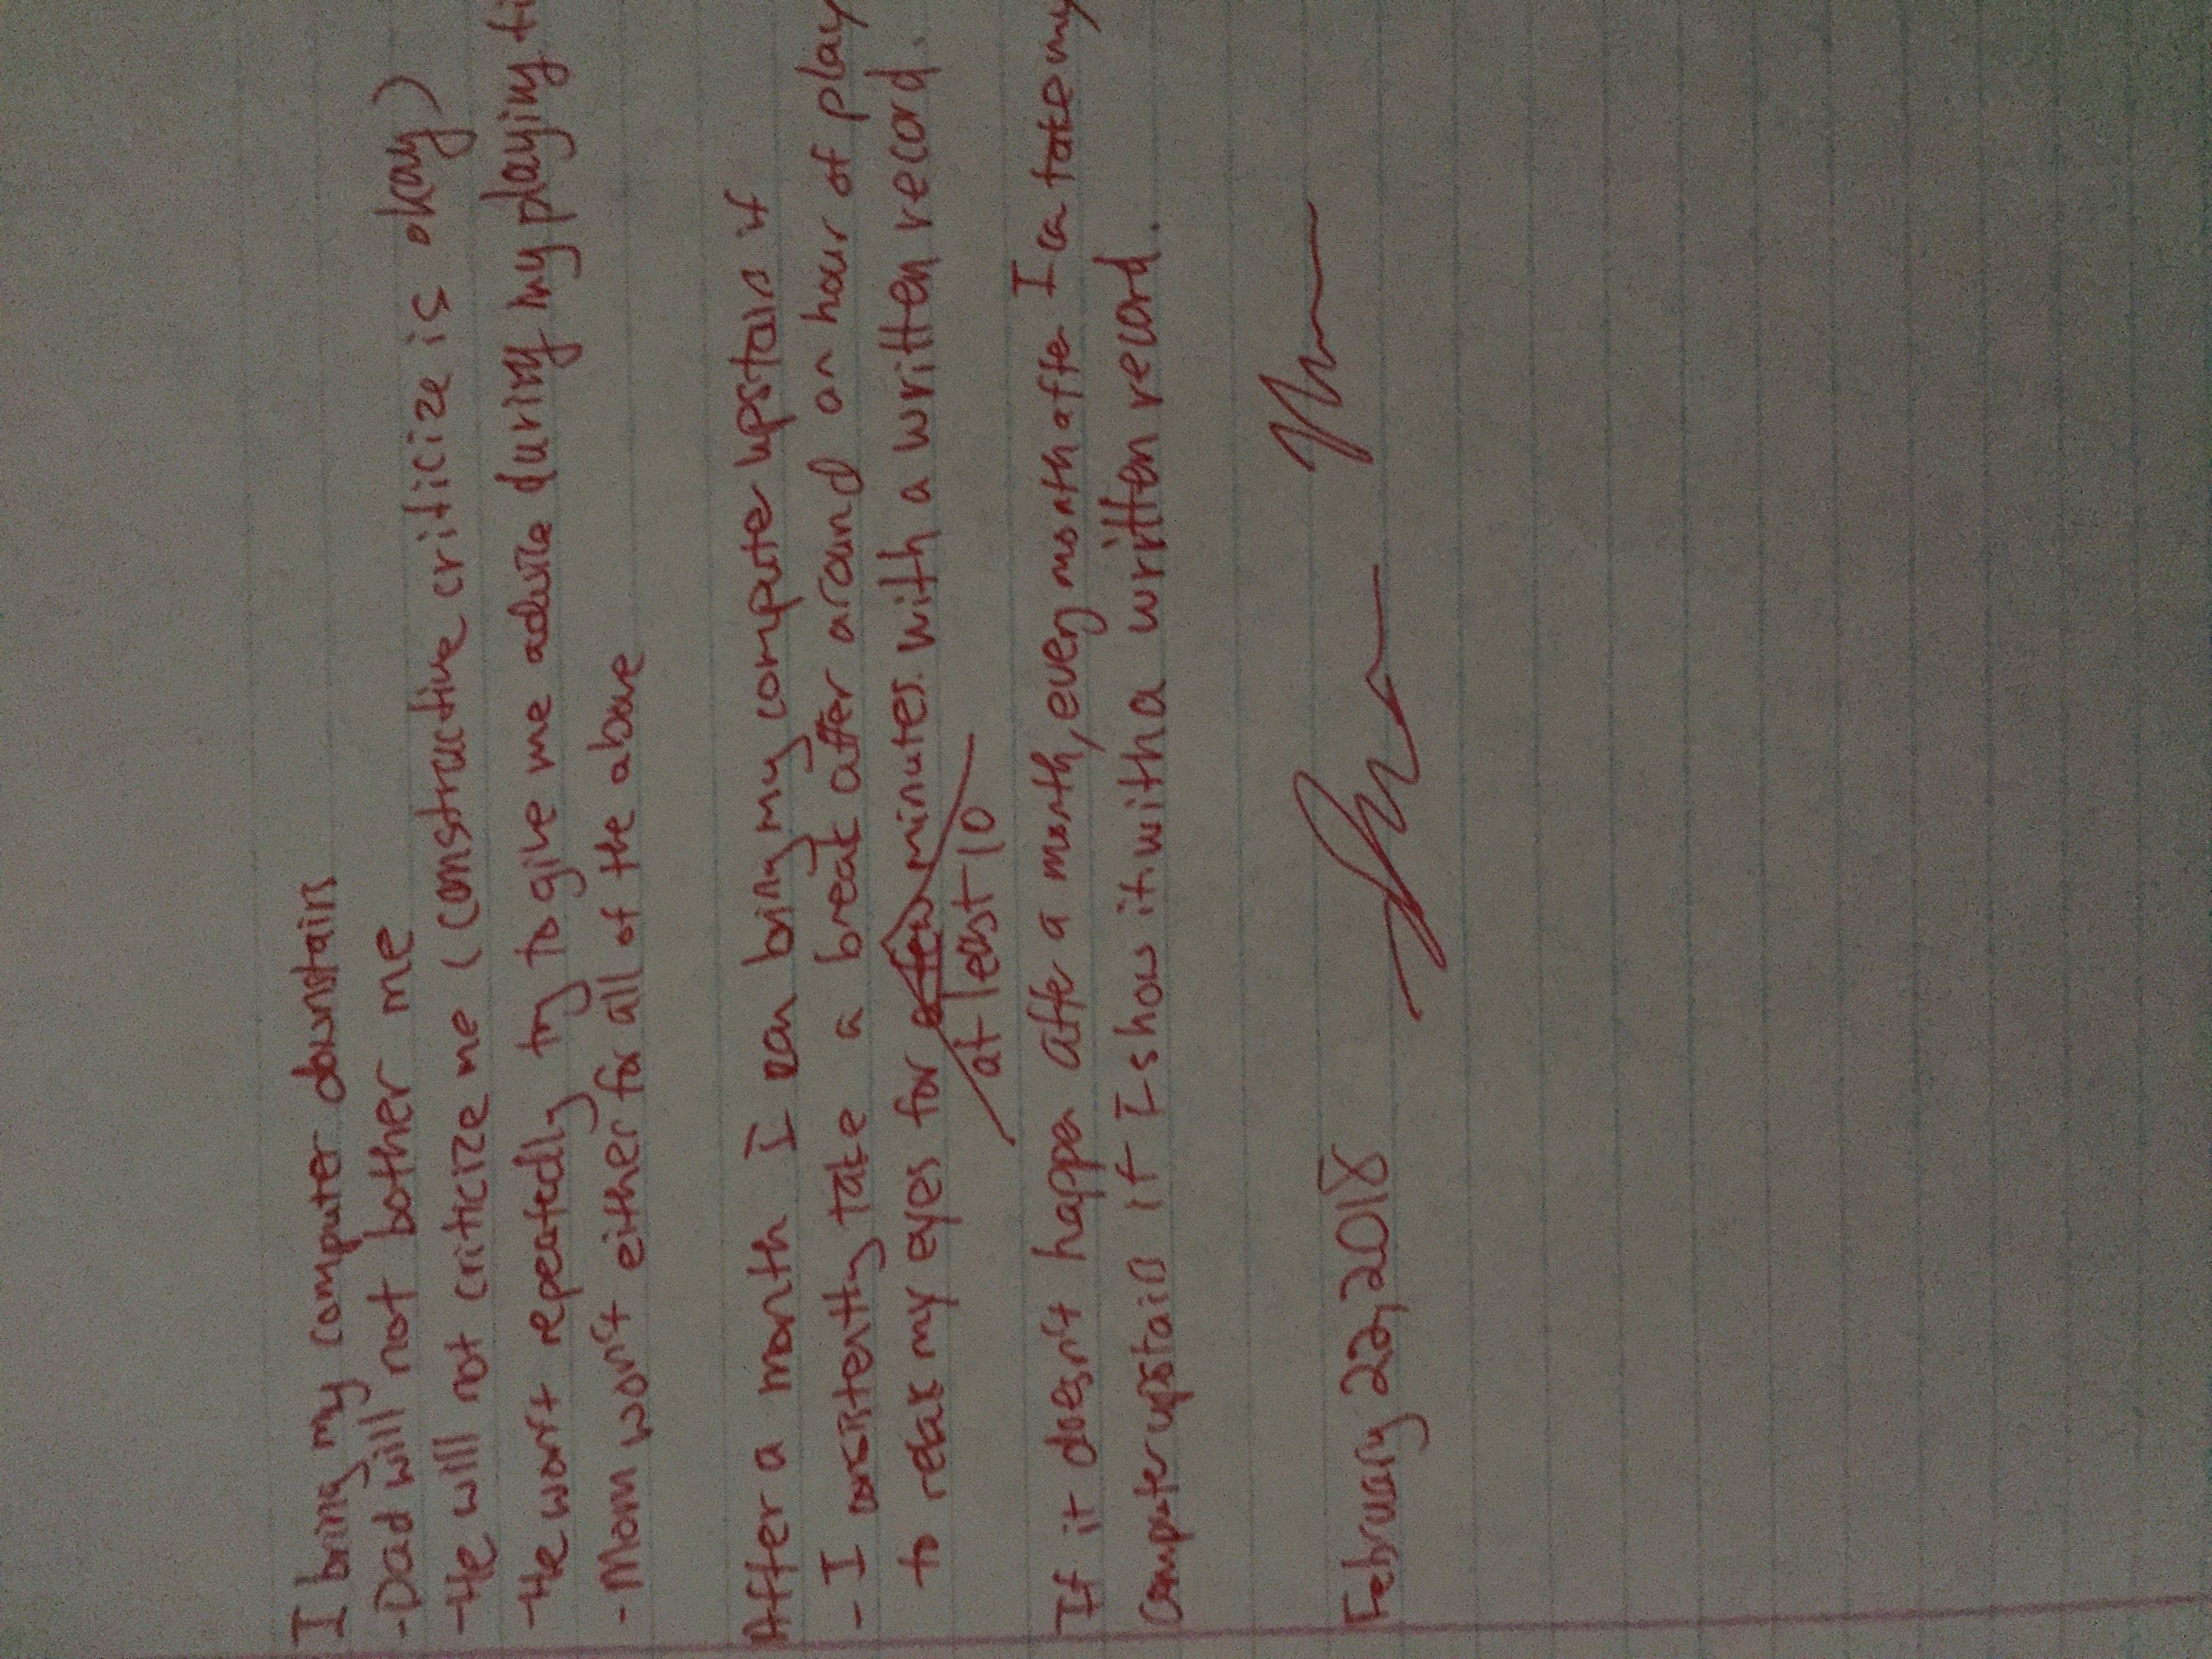 I bring my computer downstairs
-Dad will not bother me
-He will not criticize me (constructive criticize is okay)
-He won't repeatedly try to give me advice during my playing ti
-Mom won't either for all of the above
After a month I can bring my computer upstairs if
- I consistently take a break after around an hour of play
to relax my eyes for a few minutes. with a written record.
at least 10
If it doesn't happen after a month, every month after I can take my
computer upstairs if I show it with a written record.
February 22, 2018